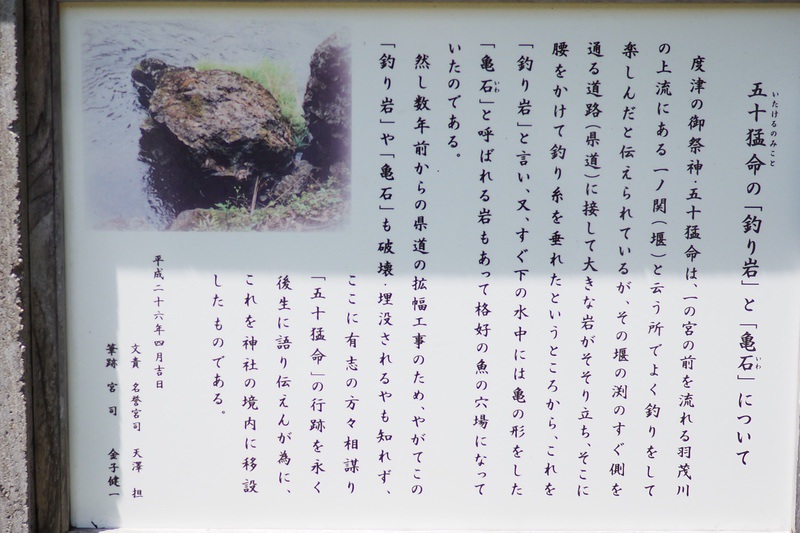 五十猛命の「釣り岩」と「亀石」について
いたけるのみこと
いわ
度津の御祭神・五十猛命は、一の宮の前を流れる羽茂川
の上流にある一ノ関(堰)と云う所でよく釣りをして
楽しんだと伝えられているが、その堰の渕のすぐ側を
通る道路(県道)に接して大きな岩がそそり立ち、そこに
腰をかけて釣り糸を垂れたというところから、これを
「釣り岩」と言い、又、すぐ下の水中には亀の形をした
「亀石」と呼ばれる岩もあって格好の魚の穴場になって
いわ
いたのである。
然し数年前からの県道の拡幅工事のため、やがてこの
「釣り岩」や「亀石」も破壊・埋没されるやも知れず、
ここに有志の方々相謀り
「五十猛命」の行跡を永く
後生に語り伝えんが為に、
これを神社の境内に移設
したものである。
平成二十六年四月吉日
文責 名誉宮司 天澤 担
筆跡 宮司 金子健一